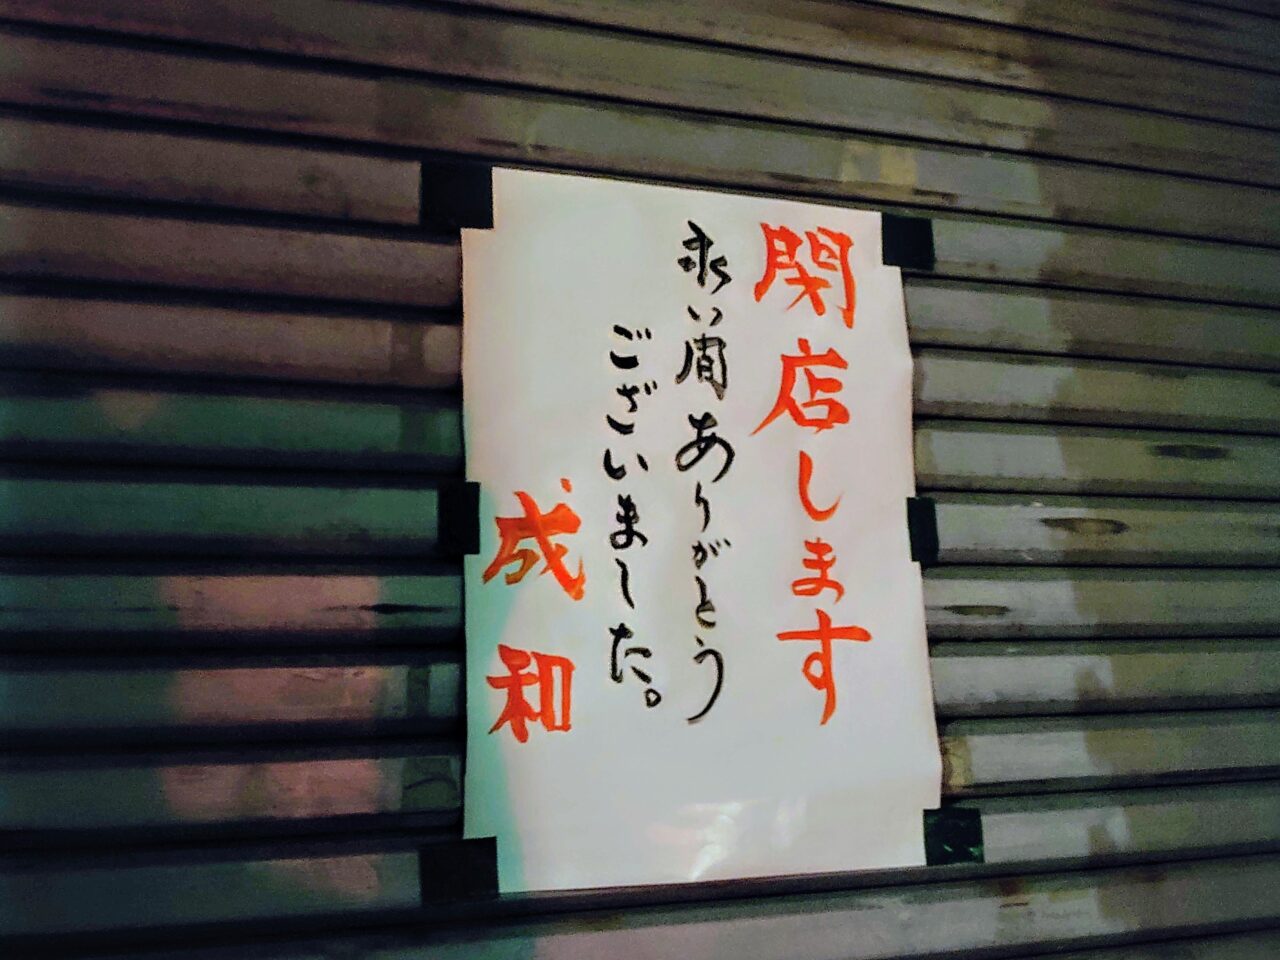 閉店します
永い間ありがとう
ございました。
成和